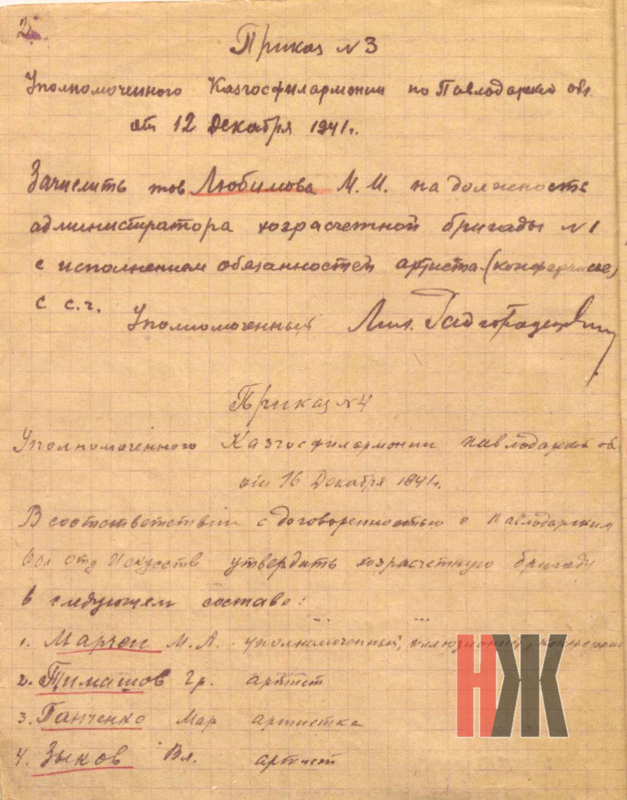 2
Приказ №3
Уполномоченного Казгосфилармонии по Павлодарской обл.
от 12 Декабря 1941г.
Зачислить тов Любимова М.И. на должность
администратора хозрасчетной бригады №1
с исполнением обязанностей артиста (конферансье)
с с.г.
Уполномоченный
Приказ №4
Уполномоченного Казгосфилармонии Павлодарской об.
от 16 Декабря 1941г.
В соответствии с договоренностью с Павлодарским
Обл отд Искусств утвердить хозрасчетную бригаду
в следующем составе:
1. Марчен М.А. уполномоченный, иллюзионист,
2. Тимашов Гр. артист
3. Панченко Мар артистка
4. Зыков Вл. артист
НЖ